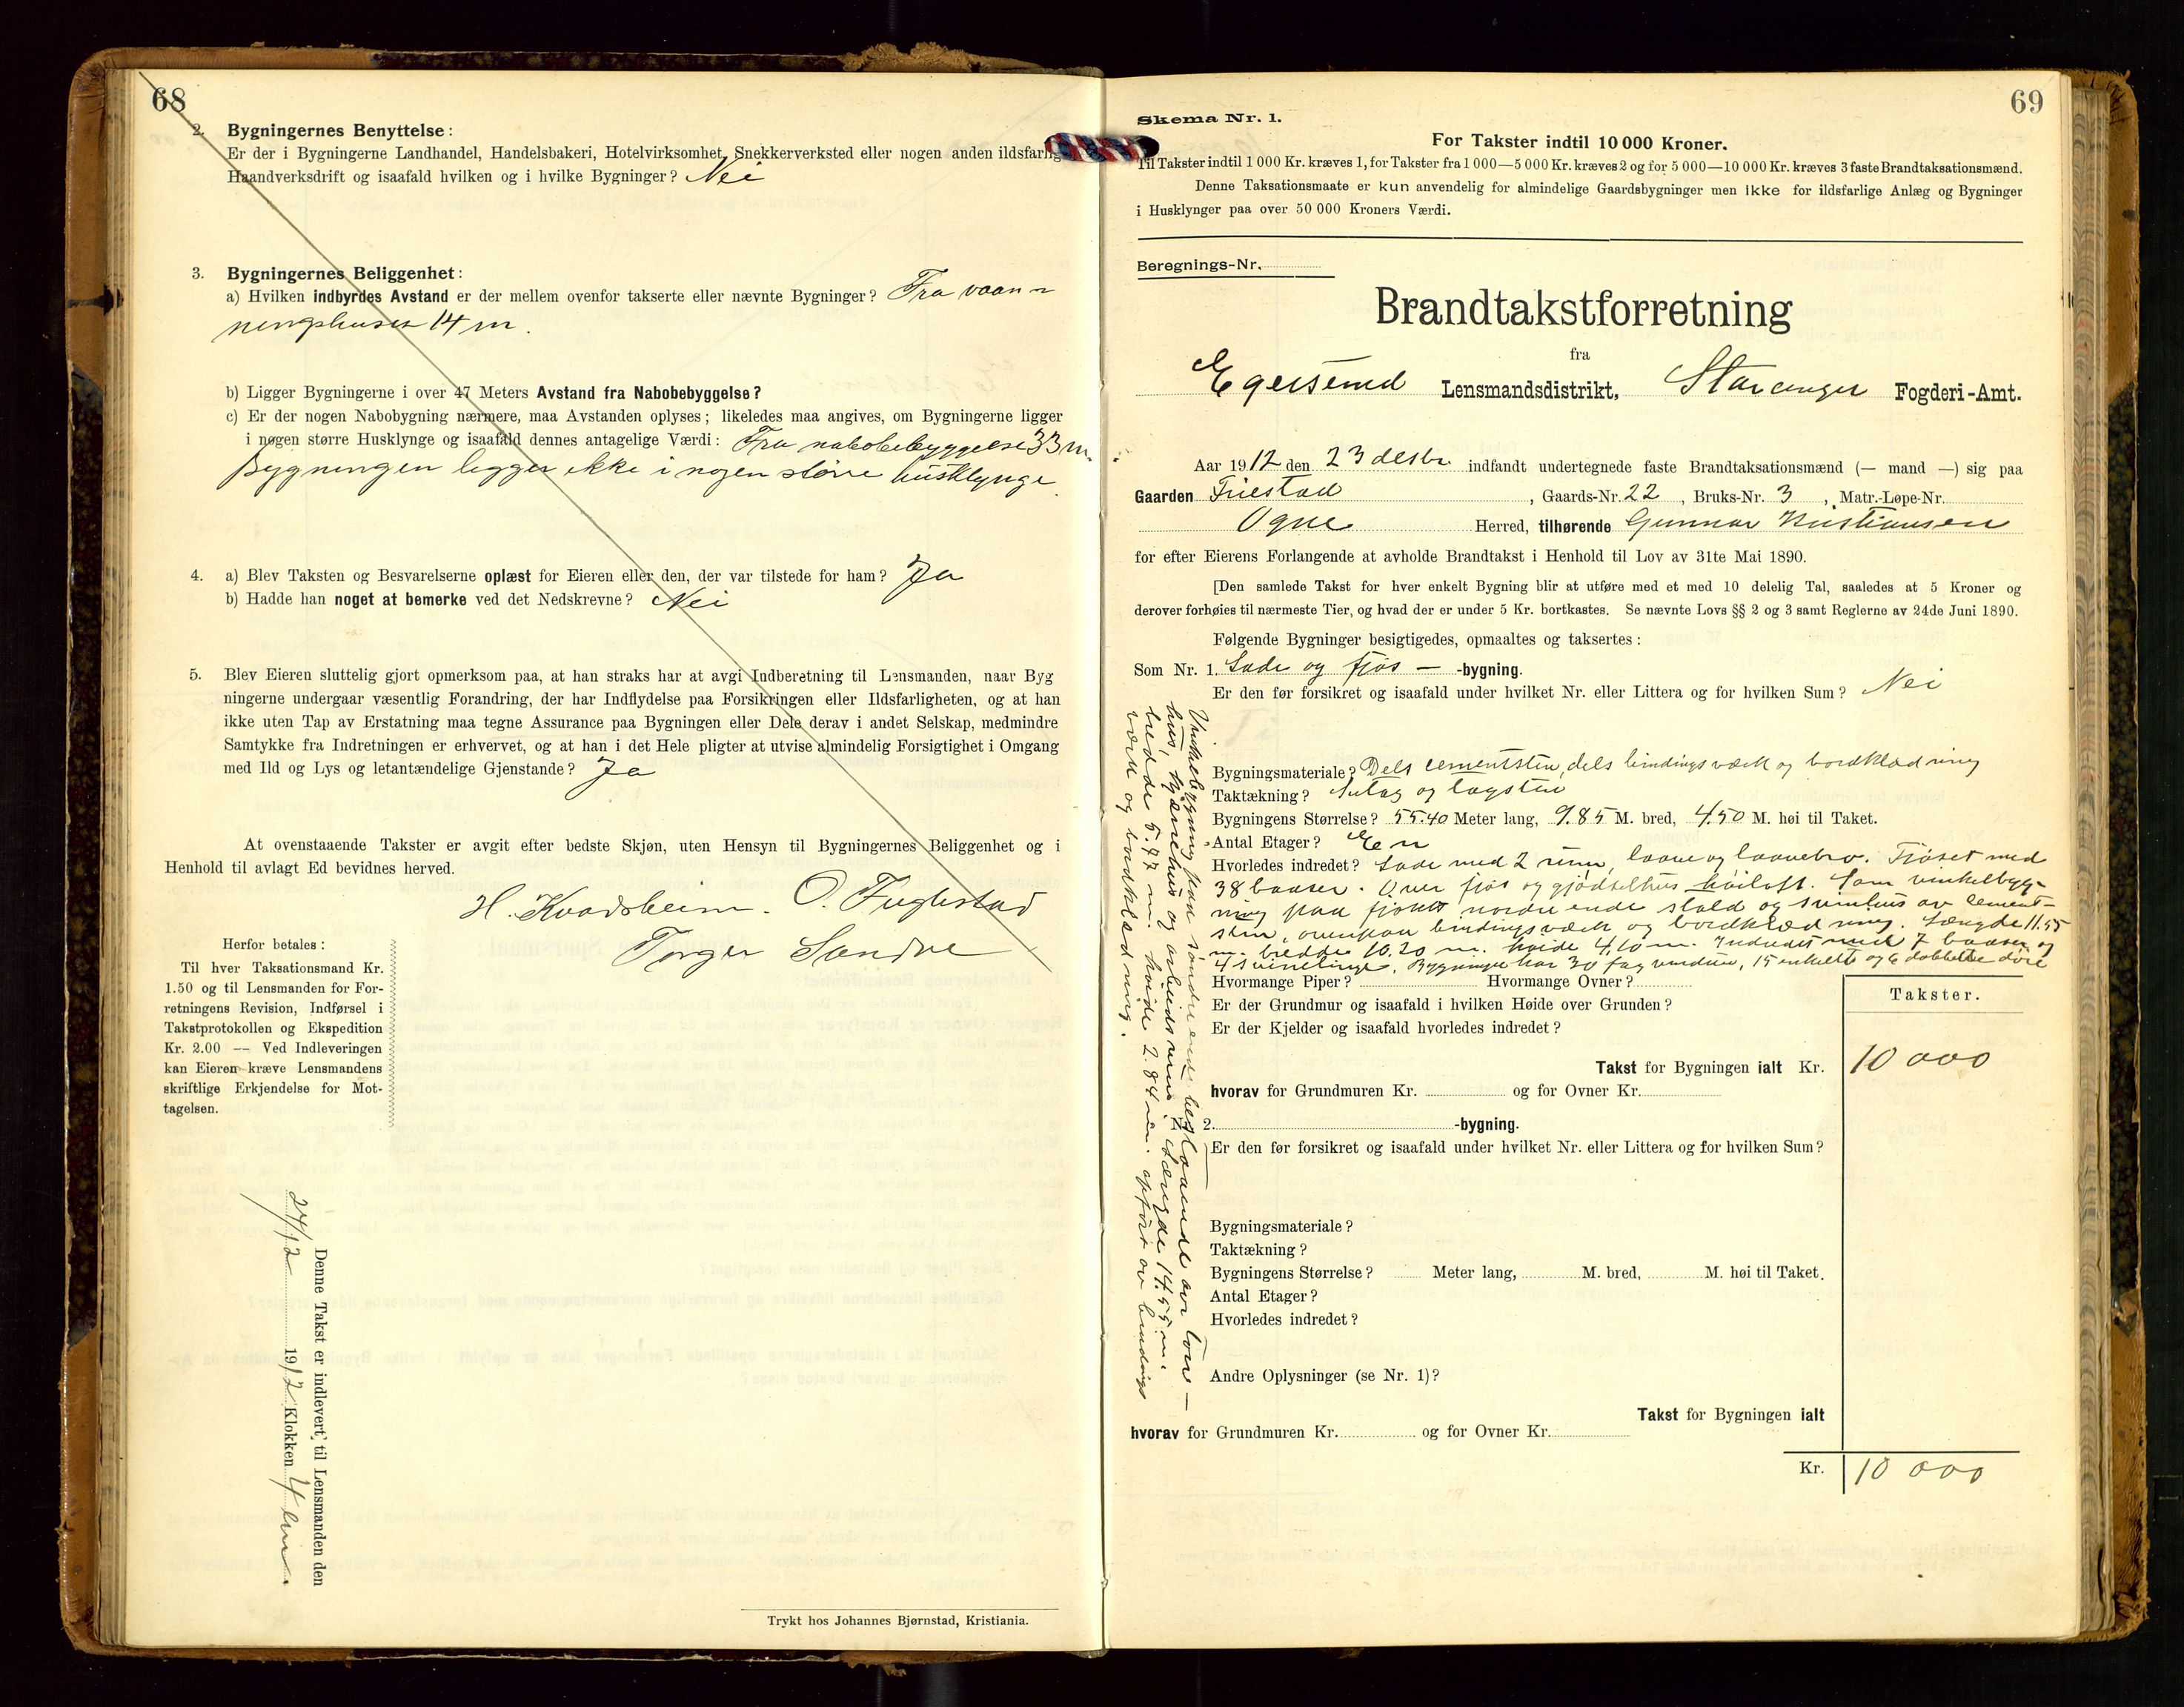 68
2. Bygningernes Benyttelse:
Er der i Bygningerne Landhandel, Handelsbakeri, Hotelvirksomhet, Snekkerverksted eller nogen anden ildsfarlig
Haandverksdrift og isaafald hvilken og i hvilke Bygninger? Nei
3. Bygningernes Beliggenhet:
a) Hvilken indbyrdes Avstand er der mellem ovenfor takserte eller nævnte Bygninger? Fra vaan-
ningshuset 14 m.
b) Ligger Bygningerne i over 47 Meters Avstand fra Nabobebyggelse?
c) Er der nogen Nabobygning nærmere, maa Avstanden oplyses; likeledes maa angives, om Bygningerne ligger
i nogen større Husklynge og isaafald dennes antagelige Værdi: Fra nabobebyggelse 33 m.
Bygningen ligger ikke i nogen større husklynge.
4. a) Blev Taksten og Besvarelserne oplæst for Eieren eller den, der var tilstede for ham? Ja
b) Hadde han noget at bemerke ved det Nedskrevne? Nei
5. Blev Eieren sluttelig gjort opmerksom paa, at han straks har at avgi Indberetning til Lensmanden, naar Byg
ningerne undergaar væsentlig Forandring, der har Indflydelse paa Forsikringen eller Ildsfarligheten, og at han
ikke uten Tap av Erstatning maa tegne Assurance paa Bygningen eller Dele derav i andet Selskap, medmindre
Samtykke fra Indretningen er erhvervet, og at han i det Hele pligter at utvise almindelig Forsigtighet i Omgang
med Ild og Lys og letantændelige Gjenstande? Ja
At ovenstaaende Takster er avgit efter bedste Skjøn, uten Hensyn til Bygningernes Beliggenhet og i
Henhold til avlagt Ed bevidnes herved.
H. Kvadsheim. O. Fuglestad
Torger Sandve
Herfor betales:
Til hver Taksationsmand Kr.
1.50 og til Lensmanden for For-
retningens Revision, Indførsel i
Takstprotokollen og Ekspedition
Kr. 2.00 — Ved Indleveringen
kan Eieren kræve Lensmandens
skriftlige Erkjendelse for Mot-
tagelsen.
Denne Takst er indlevert til Lensmanden den
24/12 1912 Klokken 4 em.
Trykt hos Johannes Bjørnstad, Kristiania.
69
Skema Nr. 1.
For Takster indtil 10 000 Kroner.
Til Takster indtil 1 000 Kr. kræves 1, for Takster fra 1 000—5 000 Kr. kræves 2 og for 5 000—10 000 Kr. kræves 3 faste Brandtaksationsmænd.
Denne Taksationsmaate er kun anvendelig for almindelige Gaardsbygninger men ikke for ildsfarlige Anlæg og Bygninger
i Husklynger paa over 50 000 Kroners Værdi.
Beregnings-Nr.
Brandtakstforretning
fra
Egersund Lensmandsdistrikt, Stavanger Fogderi-Amt.
Aar 1912 den 23 desbr. indfandt undertegnede faste Brandtaksationsmænd (— mand —) sig paa
Gaarden Friestad, Gaards-Nr. 22, Bruks-Nr. 3, Matr.-Løpe-Nr.
Ogne Herred, tilhørende Gunnar Kristiansen
for efter Eierens Forlangende at avholde Brandtakst i Henhold til Lov av 31te Mai 1890.
[Den samlede Takst for hver enkelt Bygning blir at utføre med et med 10 delelig Tal, saaledes at 5 Kroner og
derover forhøies til nærmeste Tier, og hvad der er under 5 Kr. bortkastes. Se nævnte Lovs §§ 2 og 3 samt Reglerne av 24de Juni 1890.
Følgende Bygninger besigtigedes, opmaaltes og taksertes:
Som Nr. 1. Lade og fjøs — -bygning.
Er den før forsikret og isaafald under hvilket Nr. eller Littera og for hvilken Sum? Nei
Bygningsmateriale? Dels cementsten, dels bindingsværk og bordklædning
Taktækning? og tagsten
Bygningens Størrelse? 55.40 Meter lang, 9.85 M. bred, 4.50 M. høi til Taket.
Antal Etager? En
Hvorledes indredet? Lade med 2 rum, laave og laavebro. Fjøset med
38 baaser. Over fjøs og gjødselhus høiloft. Som vinkelbyg-
ning paa fjøsets nordre ende stald og svinhus av cement-
sten, ovenpaa bindingsværk og bordklædning. Længde 11.55
m. bredde 10.20 m. høide 4.10 m. Indredet med 7 baaser og
4 svinebinge. Bygningen har 30 fag vinduer, 15 enkelte og 6 dobbelte døre
Vinkelbygning paa søndre ende bestaaende av törv-
hus, og arbeidsrum. Længde 14.55 m.
bredde 5.77 m. høide 2.84 m. opført av bindings
værk og bordklædning.
Hvormange Piper? Hvormange Ovner?
Er der Grundmur og isaafald i hvilken Høide over Grunden?
Er der Kjelder og isaafald hvorledes indredet?
Takster.
Takst for Bygningen ialt Kr. 10 000
hvorav for Grundmuren Kr. og for Ovner Kr.
Nr. 2. -bygning.
Er den før forsikret og isaafald under hvilket Nr. eller Littera og for hvilken Sum?
Bygningsmateriale?
Taktækning?
Bygningens Størrelse? Meter lang, M. bred, M. høi til Taket.
Antal Etager?
Hvorledes indredet?
Andre Oplysninger (se Nr. 1)?
Takst for Bygningen ialt
hvorav for Grundmuren Kr. og for Ovner Kr.
Kr. 10 000